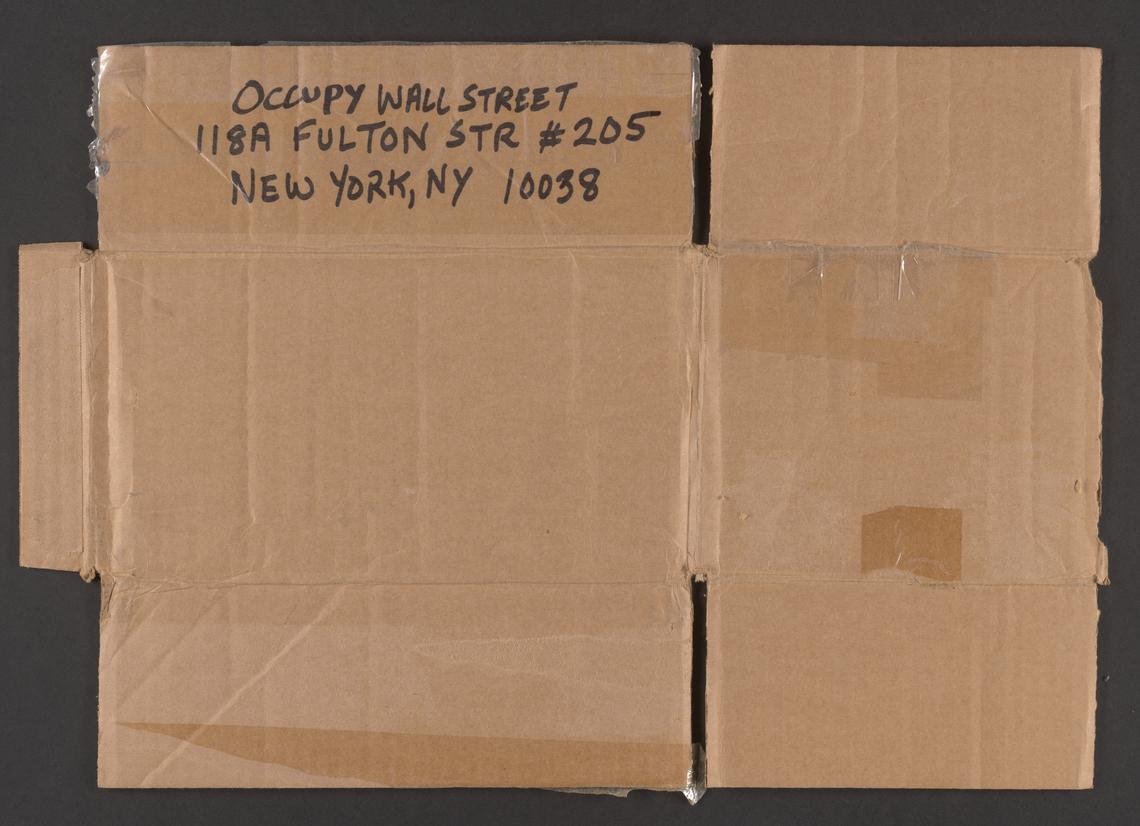 OCCUPY WALL STREET
118A FULTON STR #205
NEW YORK, NY 10038